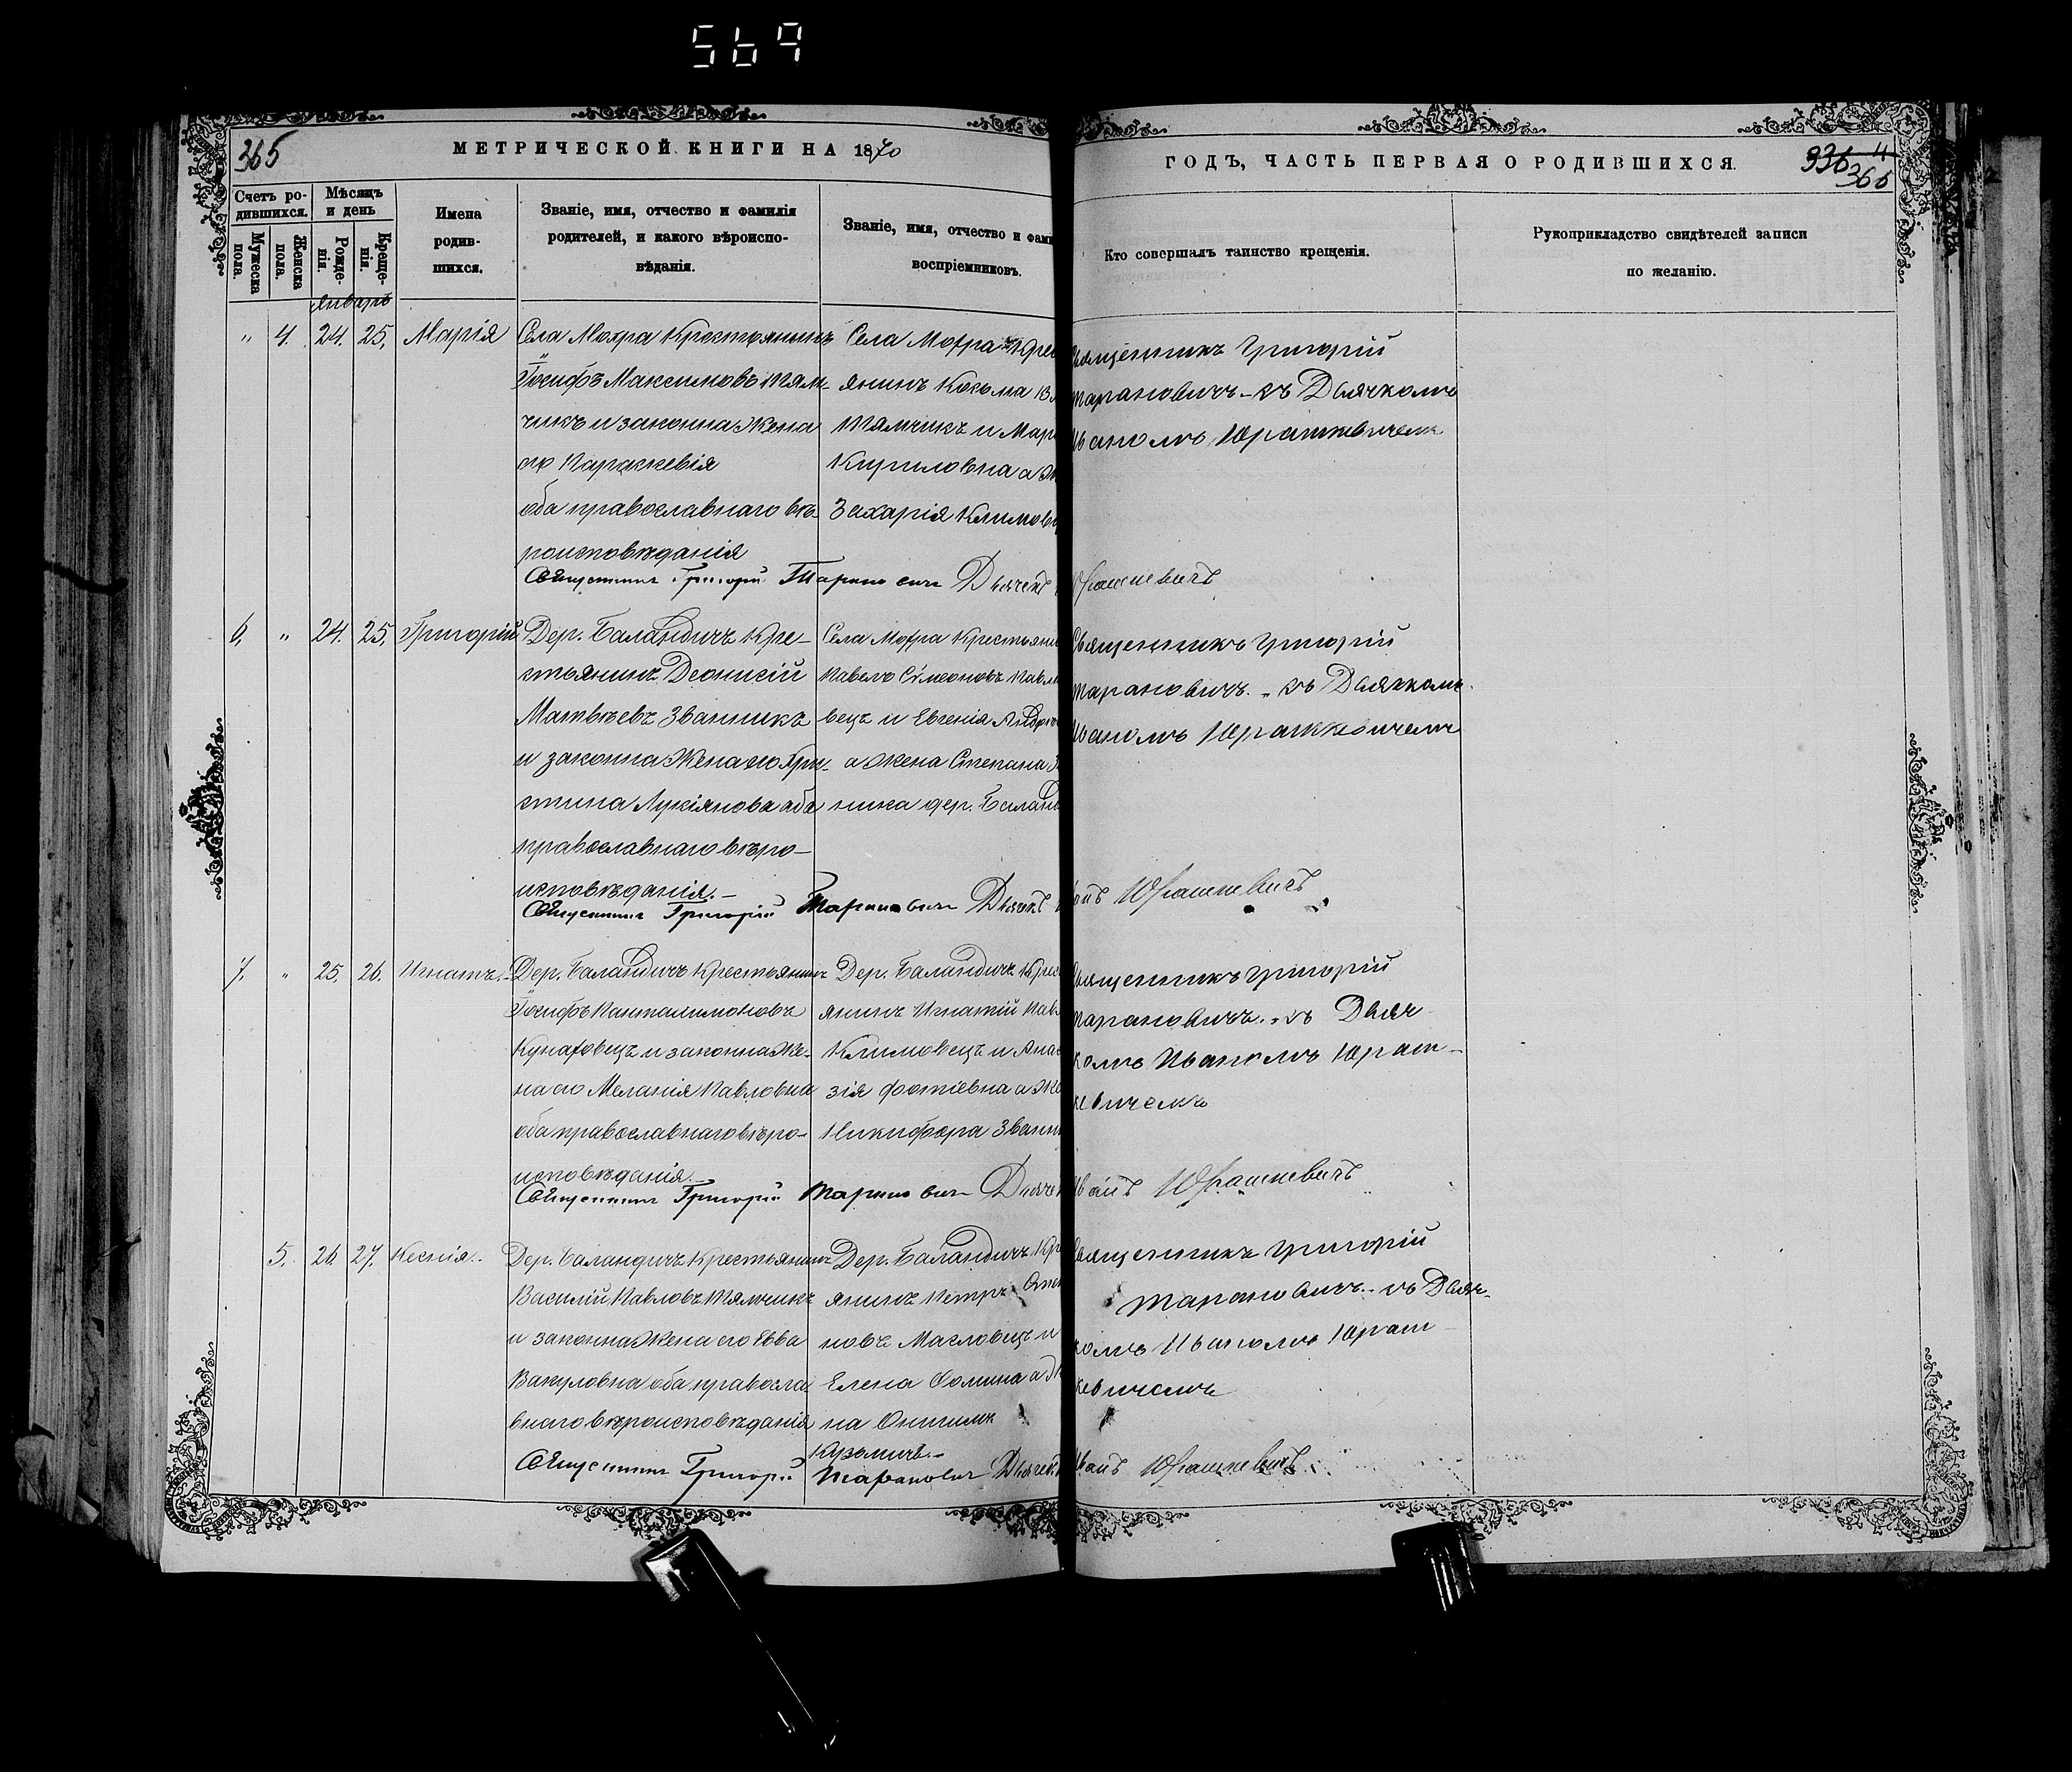 569
365
МЕТРИЧЕСКОЙ КНИГИ НА 1870
ГОДЪ, ЧАСТЬ ПЕРВАЯ О РОДИВШИХСЯ.
936 4
366
Счетъ ро-
дившихся.
Мужеска
пола.
Женска
пола.
Мѣсяцъ
и день
Рожде-
нія.
Креще-
нія.
Имена
родив-
шихся.
Званіе, имя, отчество и фамилія
родителей, и какого вѣроиспо-
вѣданія.
Званіе, имя, отчество и фами
воспріемниковъ.
Кто совершалъ таинство крещенія.
Рукоприкладство свидѣтелей записи
по желанію.
Январь
" 4. 24. 25. Марія
Села Мохра Крестьянинъ
Іосифъ Максимовъ Тям-
чикъ и законна жена
его Параскевія
оба православнаго вѣ-
роисповѣданія
Села Мохра Крес
янинъ Козьма
Тямчикъ и Мар
Кириловна а
Захарія Климов
Священникъ Григорій
Тарановичъ - съ Дьячкомъ
Иваномъ Юрашкевичемъ
Священникъ Григорій Тарановичъ Дьячекъ Юрашкевичъ
6. " 24. 25. Григорій
Дер. Баландичъ Кре-
стьянинъ Деонисій
Матвѣевъ Званникъ
и законна жена его Хри-
стина Лукіянова оба
православнаго вѣро-
исповѣданія.-
Села Мохра Крестьяни
Павелъ Сімеоновъ Павл
вецъ и Евгенія Андре
а жена Степана З
ника дер. Балан
Священникъ Григорій
Тарановичъ. - съ Дьячкомъ
Иваномъ Юрашкевичемъ
Священникъ Григорій Тарановичъ Дьячекъ Иванъ Юрашкевичъ
7. " 25. 26. Игнатъ.-
Дер. Баландичъ Крестьянинъ
Іосифъ Панталимоновъ
Кунаховецъ и законна же-
на его Меланія Павловна
оба православнаго вѣро-
исповѣданія.-
Дер. Баландичъ Крес
янинъ Игнатій Пав
Климовецъ и Анас
зія Фотіевна а же
Никифора Званн
Священникъ Григорій
Тарановичъ. - съ Дьяч
комъ Иваномъ Юраш-
кевичемъ
Священникъ Григорій Тарановичъ Дьячекъ Иванъ Юрашкевичъ
5. 26. 27. Ксенія.-
Дер. Баландичъ Крестьянинъ
Василій Павловъ Тямчикъ
и законна жена его Евва
Вакуловна оба правосла
внаго вѣроисповѣданія
Дер. Баландичъ Кр
янинъ Петръ
новъ Масловецъ и
Елена Фомина а ж
на
Кузьмичъ.-
Священникъ Григорій
Тарановичъ. - съ Дьяч-
комъ Иваномъ Юраш
кевичемъ
Священникъ Григорій Тарановичъ Дьячекъ Иванъ Юрашкевичъ